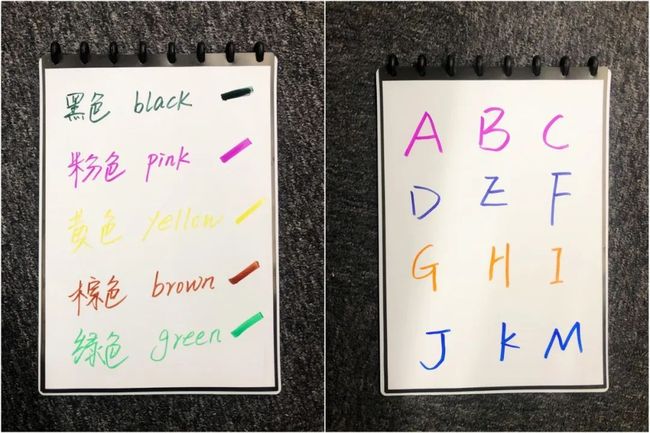 黑色 black
粉色 pink
黄色 yellow
棕色 brown
绿色 green
A B C
D E F
G H I
J K M